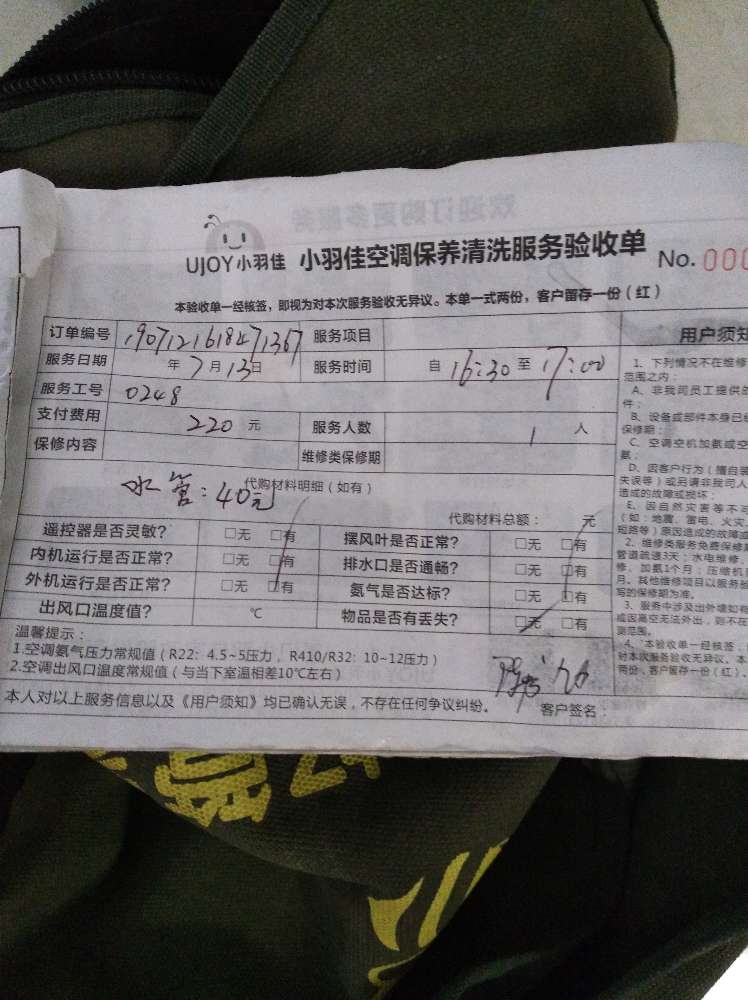 欢迎订购更多服务
UJOY小羽佳 小羽佳空调保养清洗服务验收单 No. 000
本验收单一经核签，即视为对本次服务验收无异议。本单一式两份，客户留存一份（红）
订单编号 1907121618471367 服务项目
服务日期 年7月13日 服务时间 自16:30至17:00
服务工号 0248
支付费用 220元 服务人数 1人
保修内容 维修类保修期
代购材料明细（如有）
水管：40元
代购材料总额： 元
遥控器是否灵敏？ □无 □有 摆风叶是否正常？ □无 □有
内机运行是否正常？ □无 □有 排水口是否通畅？ □无 □有
外机运行是否正常？ □无 □有 氨气是否达标？ □无 □有
出风口温度值？ ℃ 物品是否有丢失？ □无 □有
温馨提示：
1.空调氨气压力常规值（R22：4.5~5压力，R410/R32：10~12压力）
2.空调出风口温度常规值（与当下室温相差10℃左右）
本人对以上服务信息以及《用户须知》均已确认无误，不存在任何争议纠纷。 客户签名：
用户须知
1、下列情况不在维修
范围之内：
A、非我司员工提供
件；
B、设备或部件本身已
保修期；
C、空调空机加氨或空
氨；
D、因客户行为（擅自
失误等）或另请非我司人
造成的故障或损坏；
E、因自然灾害等不
（如：地震、雷电、火灾
短路等）原因造成的故障或
2、维修类服务免费保修期
管道疏通3天；水电维修、
修、加氨1个月；压缩机
月。其他维修项目以服务
写的保修期为准。
3、服务中涉及出外墙如
或因高空无法外出，则不在
测范围。
4、本验收单一经核签，
对本次服务验收无异议。本
两份，客户留存一份（红）。